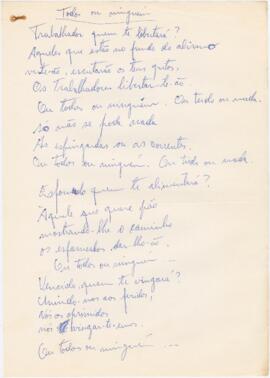 Todos ou ninguém
Trabalhador quem te libertará?
Aqueles que estão no fundo do abismo
vêste-ão, escutarão os teus gritos.
Os Trabalhadores libertar-te-ão.
Ou todos ou ninguém. Ou tudo ou nada.
só não se pode nada
As espingardas ou as correntes.
Ou todos ou ninguém. Ou tudo ou nada.
Esfomeado quem te alimentará?
Aquele que quere pão
mostrando-lhe o caminho
os esfomeados dar-lho-ão.
Ou todos ou ninguém ...
Vencido, quem te vingará?
Unindo-nos aos feridos,
Nós os oprimidos
nós vingar-te-emos.
Ou todos ou ninguém ...